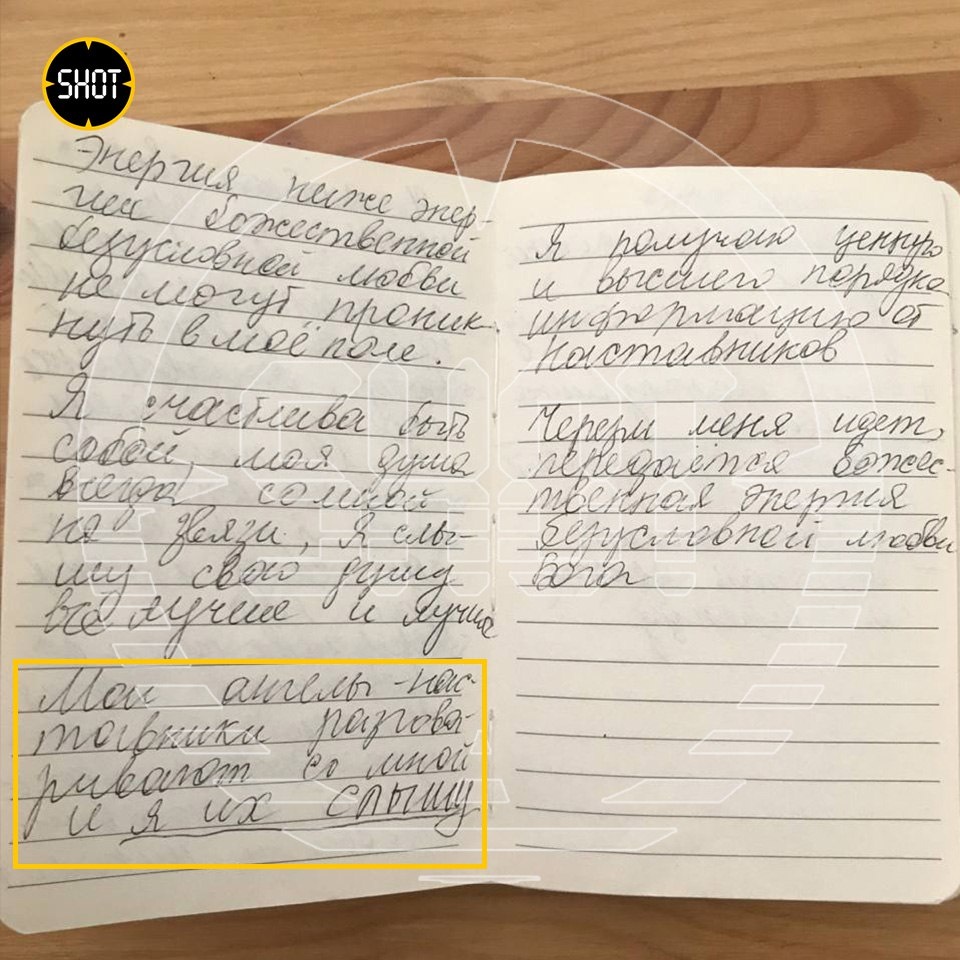 SHOT
Энергия ниже энер-
гии божественной
безусловной любви
не могут проник-
нуть в моё поле.
Я счастлива быть
собой, моя душа
всегда со мной
на связи, Я слы-
шу свою душу
всё лучше и лучше
Мои ангелы-нас-
тавники разгова-
ривают со мной
и я их слышу
Я получаю ценную
и высшего порядка
информацию от
наставников
Через меня идет,
передаётся божес-
твенная энергия
безусловной любви
Бога